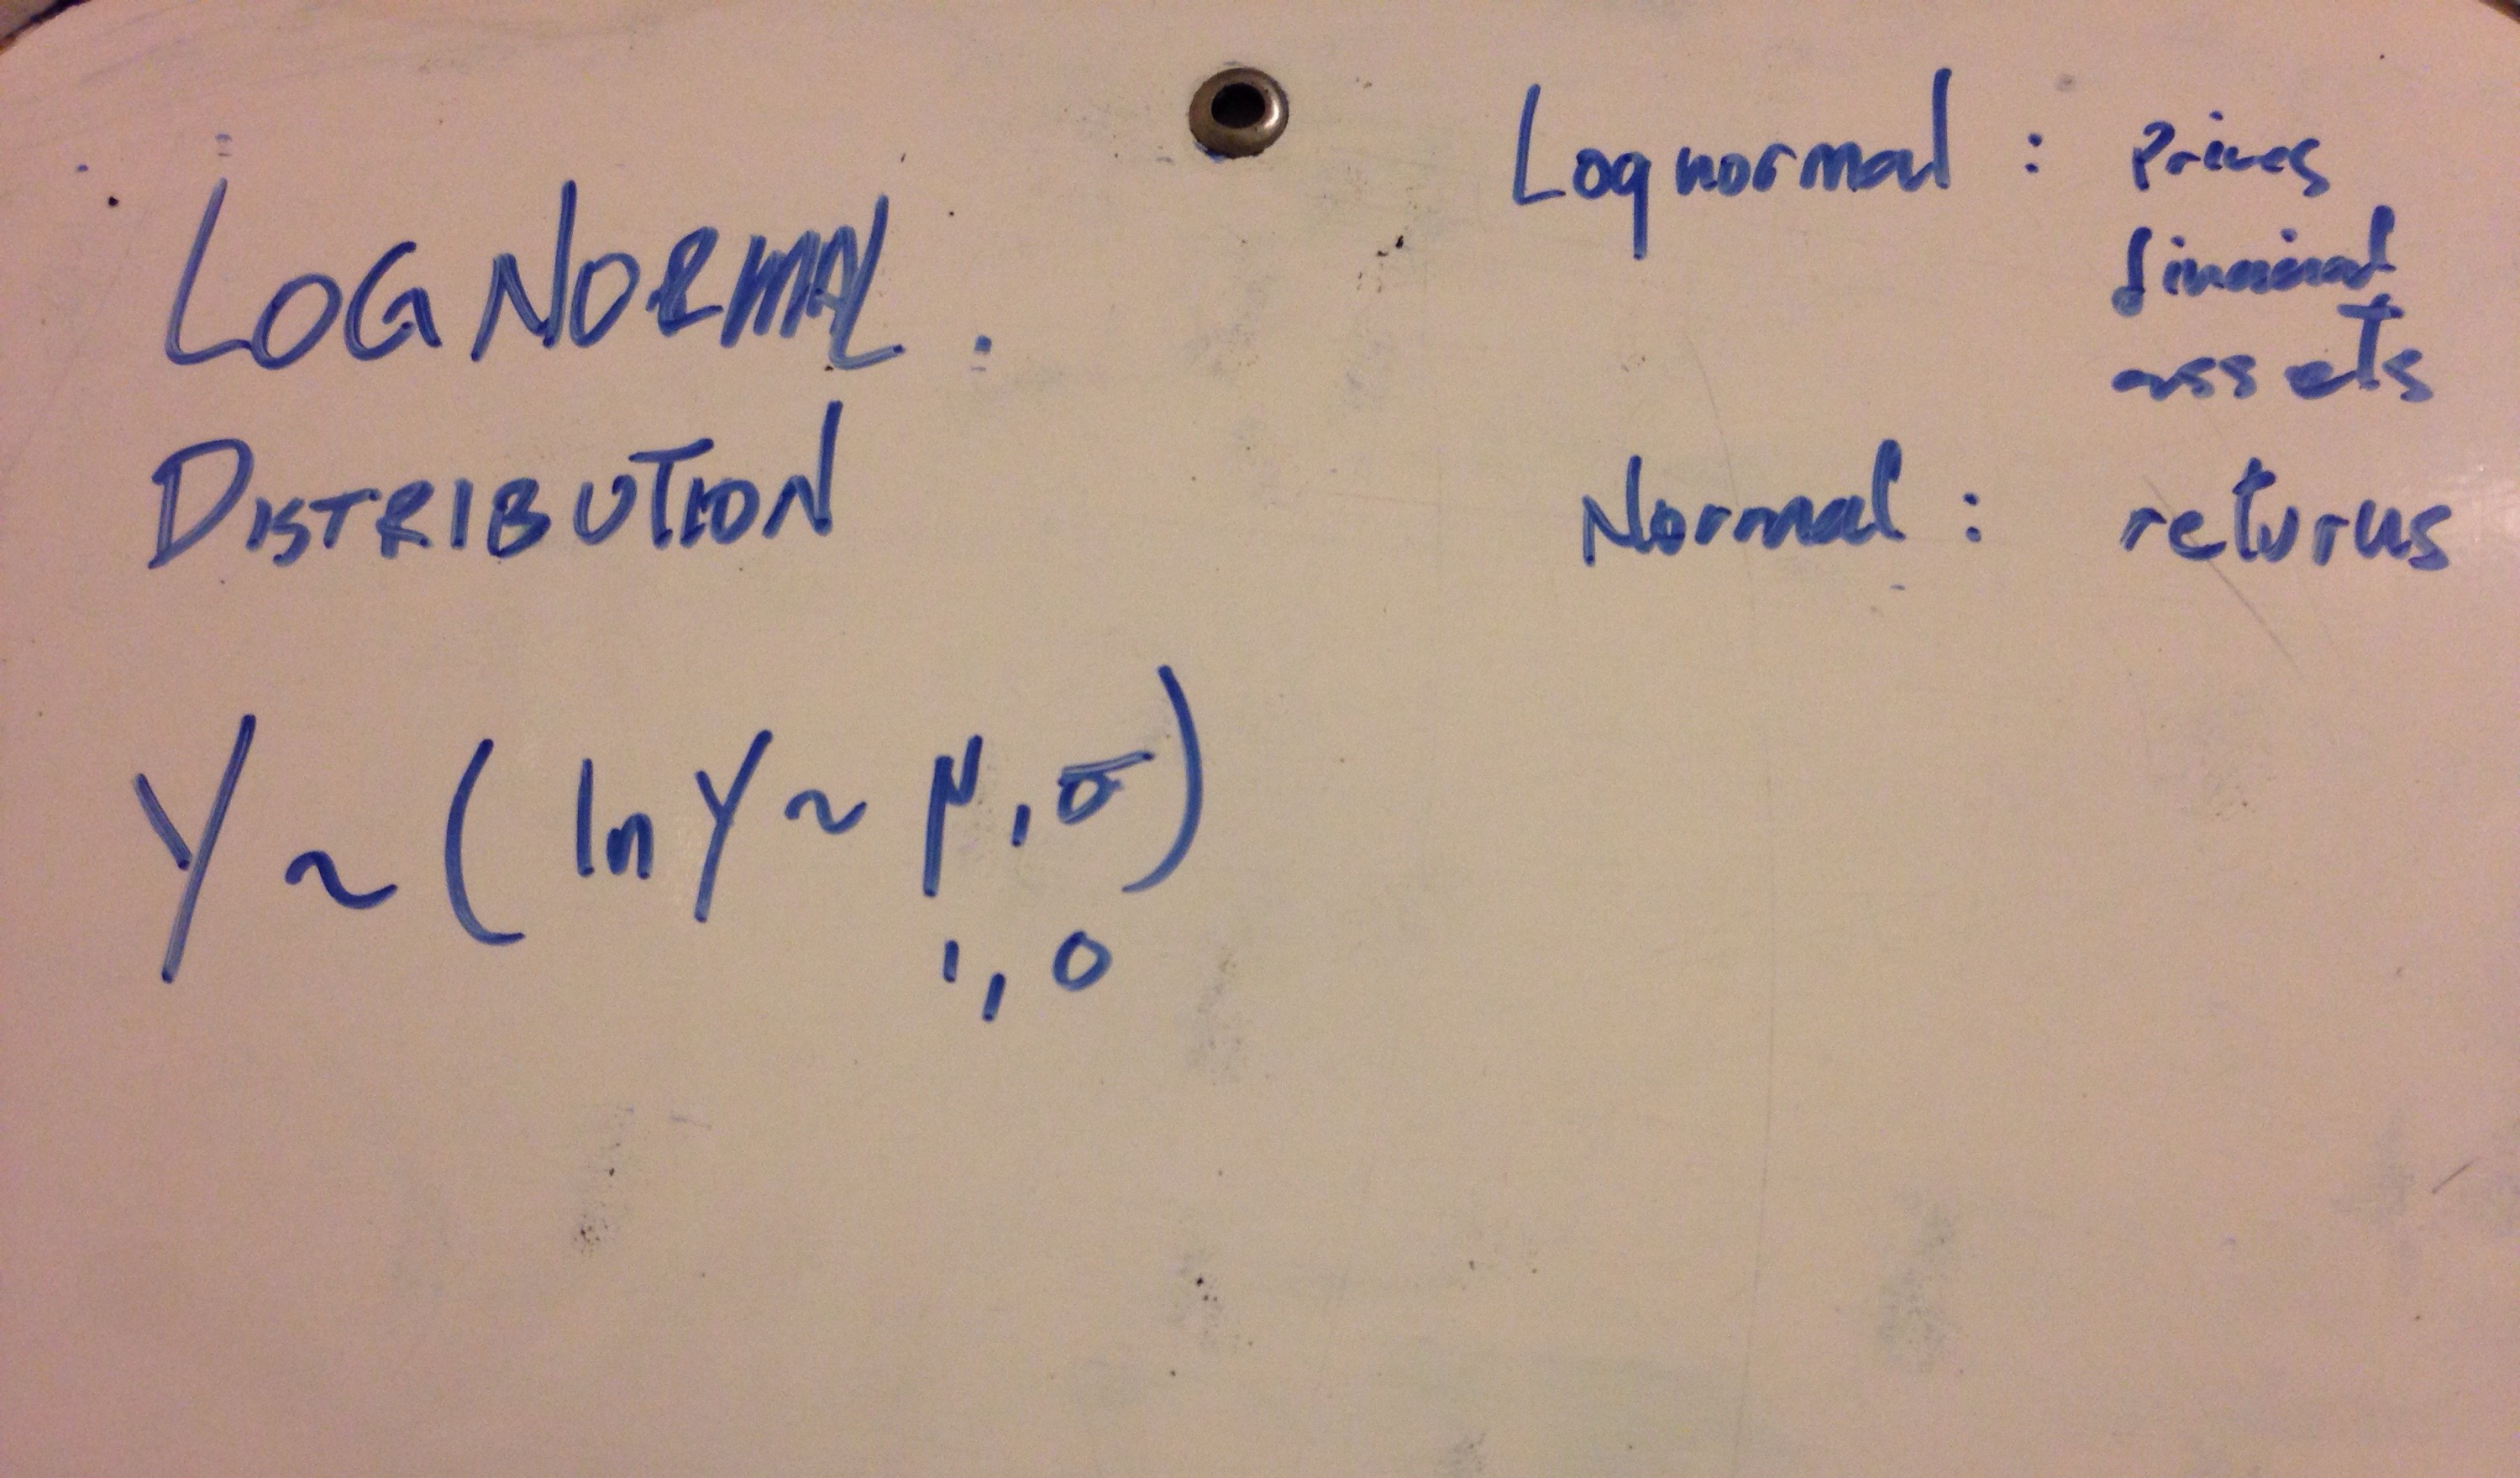 LOGNORMAL
DISTRIBUTION
Y ~ ( ln Y ~ μ, σ )
1, 0
Lognormal : Prices
financial
assets
Normal : returns